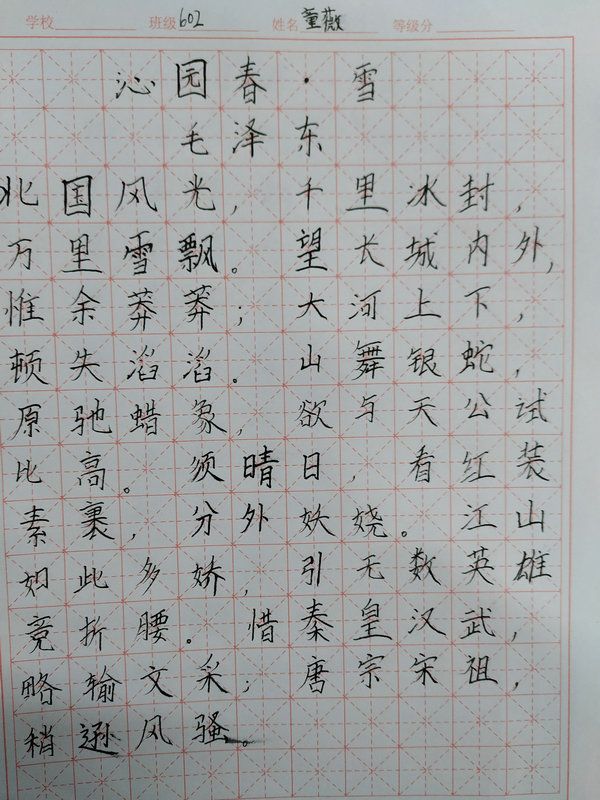 学校 班级 602 姓名 董薇 等级分
沁园春·雪
毛泽东
北国风光，千里冰封，
万里雪飘。望长城内外，
惟余莽莽；大河上下，
顿失滔滔。山舞银蛇，
原驰蜡象，欲与天公试
比高。须晴日，看红装
素裹，分外妖娆。江山
如此多娇，引无数英雄
竞折腰。惜秦皇汉武，
略输文采；唐宗宋祖，
稍逊风骚。